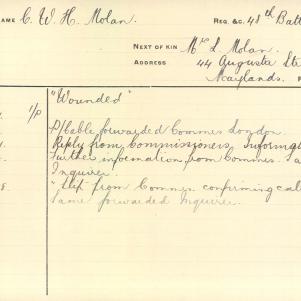 NAME C. W. H. Molan. REG. &C. 48th Batt
NEXT OF KIN Mrs L. Molan.
ADDRESS 44 Augusta Ste
Maylands.
1/p "Wounded"
D/Cable forwarded Commrs London.
Reply from Commissioners Informat
further information from Commrs.
Inquirer.
" from Commrs. confirming cab
Same forwarded Inquirer.